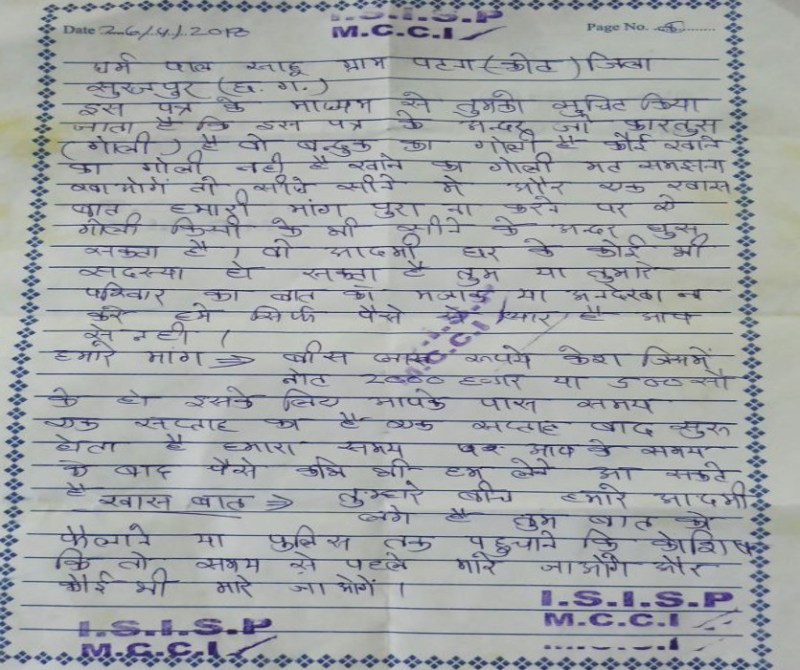 I.S.I.S.P
Date 26/4/2018 M.C.C.I Page No.
धर्म पाल साहू ग्राम पटना (कोट) जिला
सुरजपुर (छ. ग.)
इस पत्र के माध्यम से तुमको सुचित किया
जाता है कि इस पत्र के अन्दर जो कारतुस
(गोली) है वो बन्दुक का गोली है कोई खाने
का गोली नही है खाने का गोली मत समझना
खाओगें तो सीधे सीने मे और एक खास
बात हमारी मांग पुरा ना करने पर ये
गोली किसी के भी सीने के अन्दर घुस
सकता है। वो आदमी घर के कोई भी
सदस्या हो सकता है तुम या तुमारे
परिवार का बात को मजाक या अनदेखा न
करे हमे सिर्फ पैसे से प्यार है आप
से नही।
हमारे मांग ⇒ बीस लाख रूपये केश जिसमें
नोट 2000 हजार या 500 सौ
के हो इसके लिए आपके पास समय
एक सप्ताह का है एक सप्ताह बाद सुरू
होता है हमारा समय आप के समय
के बाद पैसे कभि भी हम लेने आ सकते
है खास बात ⇒ तुम्हारे बीच हमारे आदमी
लगे है तुम बात को
फैलाने या पुलिस तक पहुचाने कि कोशिष
कि तो समय से पहले मारे जाओगे और
कोई भी मारे जाओगें।
M.C.C.I
I.S.I.S.P
M.C.C.I
I.S.I.S.P
M.C.C.I